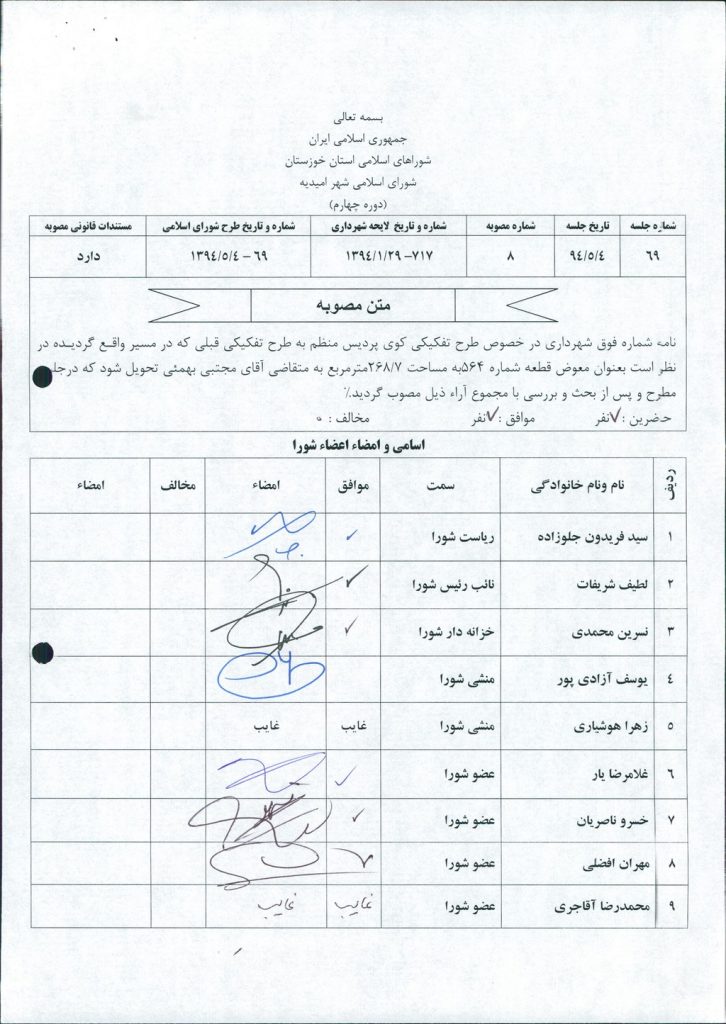 بسمه تعالی
جمهوری اسلامی ایران
شوراهای اسلامی استان خوزستان
شورای اسلامی شهر امیدیه
(دوره چهارم)
شماره جلسه تاریخ جلسه شماره مصوبه شماره و تاریخ لایحه شهرداری شماره و تاریخ طرح شورای اسلامی مستندات قانونی مصوبه
۶۹ ۹۴/۵/۴ ۸ ۷۱۷- ۱۳۹۴/۱/۲۹ ۶۹ - ۱۳۹۴/۵/۴ دارد
متن مصوبه
نامه شماره فوق شهرداری در خصوص طرح تفکیکی کوی پردیس منظم به طرح تفکیکی قبلی که در مسیر واقع گردیده در
نظر است بعنوان معوض قطعه شماره ۵۶۴به مساحت ۲۶۸/۷مترمربع به متقاضی آقای مجتبی بهمئی تحویل شود که درجل
مطرح و پس از بحث و بررسی با مجموع آراء ذیل مصوب گردید./
حضرین :۷نفر موافق :۷نفر مخالف : ۰
اسامی و امضاء اعضاء شورا
ردیف نام ونام خانوادگی سمت موافق امضاء مخالف امضاء
۱ سید فریدون جلوزاده ریاست شورا
۲ لطیف شریفات نائب رئیس شورا
۳ نسرین محمدی خزانه دار شورا
۴ یوسف آزادی پور منشی شورا
۵ زهرا هوشیاری منشی شورا غایب غایب
۶ غلامرضا یار عضو شورا
۷ خسرو ناصریان عضو شورا
۸ مهران افضلی عضو شورا
۹ محمدرضا آقاجری عضو شورا غایب غایب